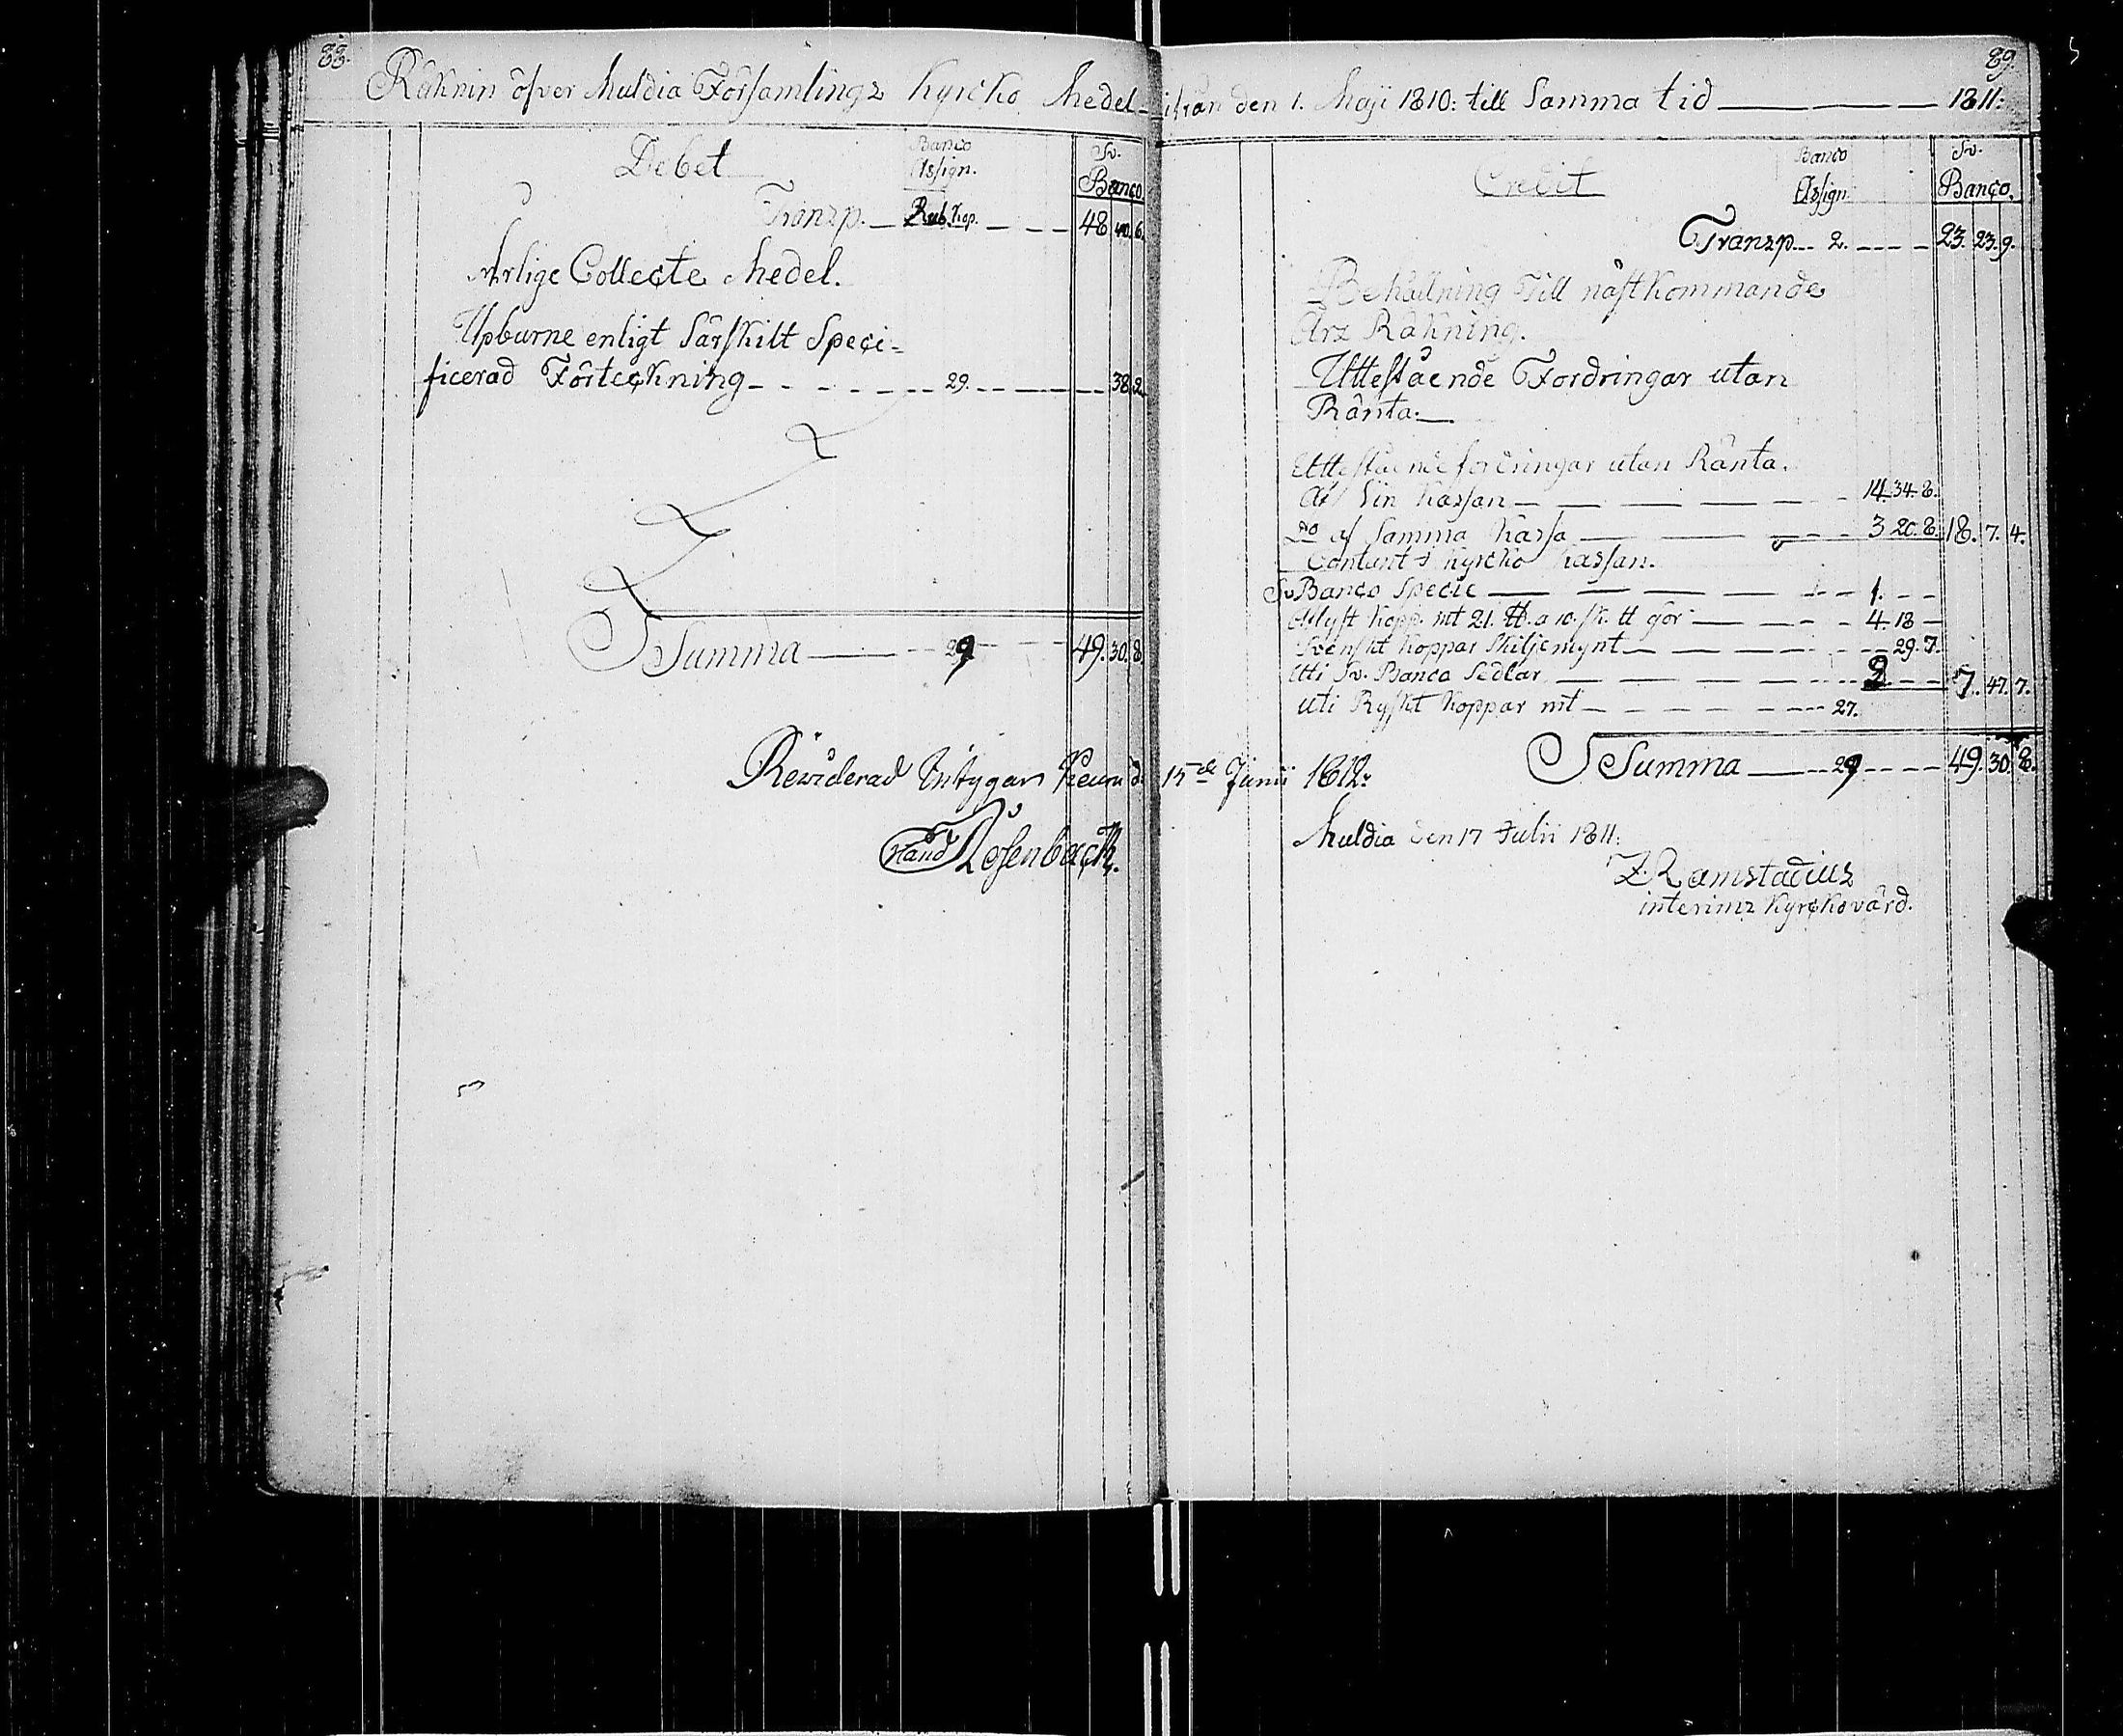 88.
Räknin öfver Muldia Församlings Kyrcko Medel
Debet
Banco
Assign.
Sv.
Banco
Transp. Rub. Kop. 48 40. 6.
Årlige Collecte Medel.
Upburne enligt Särskilt Speci=
ficerad Förteckning 29. 38 2
Summa 29 49. 30. 8
Reviderad Intygar Keuru d.
Rosenback.
89.
ifrån den 1. Maji 1810: till Samma tid 1811:
Credit
Banco
Assign.
Sv.
Banco.
Transp. 2. 23. 23. 9.
Behållning Till nästkommande
Års Räkning.
Uttestående Fordringar utan
Ränta.
Uttestående fordringar utan Ränta.
Af Sin Kassan 14. 34. 8.
Do af Samma Kassa 3 20. 8. 18. 7. 4.
Contant i Kyrcko Kassan.
Sv Banco Specie 1.
Ryst Kopp. mt 21. ℔. a 10. sk. ℔ gör 4. 18
Svenskt Koppar Skiljemynt 29. 7.
Uti Sv. Banco Sedlar 2 7. 47. 7.
uti Ryskt Koppar mt 27.
Summa 29 49. 30. 8.
15de Junii 1812:
Muldia den 17 Julii 1811:
Z. Ramstadius
interims Kyrckovärd.